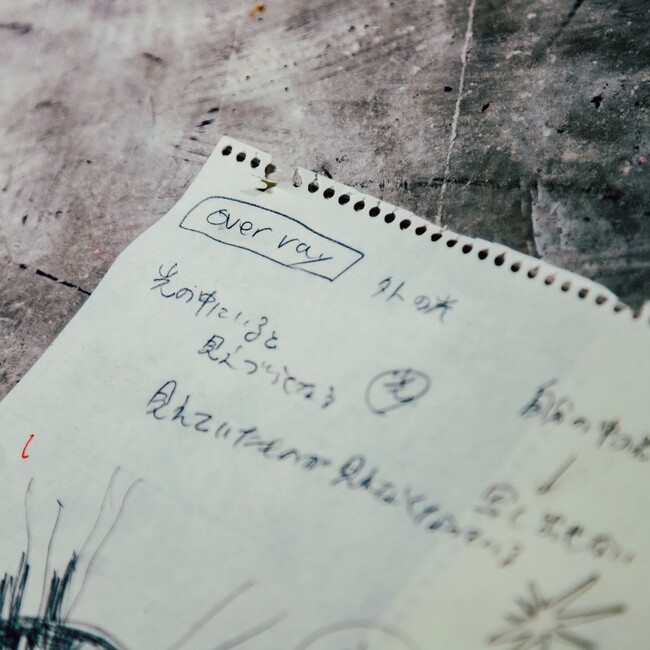 over ray
外の光
光の中にいると
見えづらくなる
光
見えていたものが見えなくなっている
自分の中の光